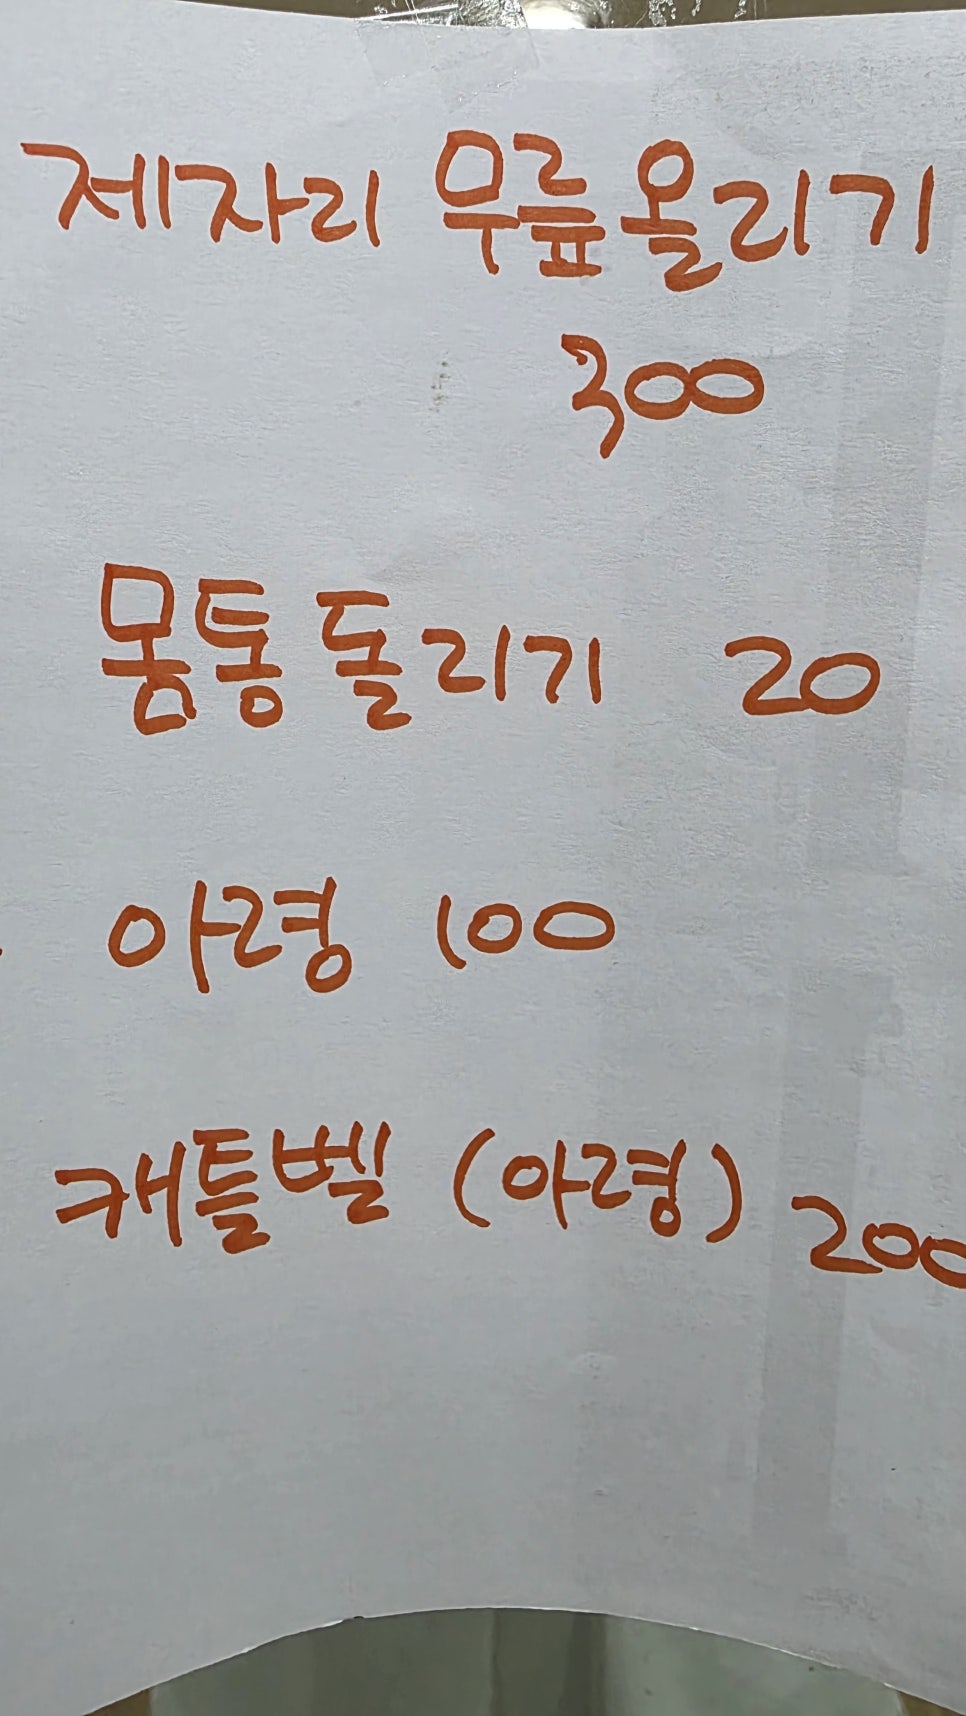 제자리 무릎올리기
300
몸통돌리기 20
아령 100
캐틀벨 (아령) 200